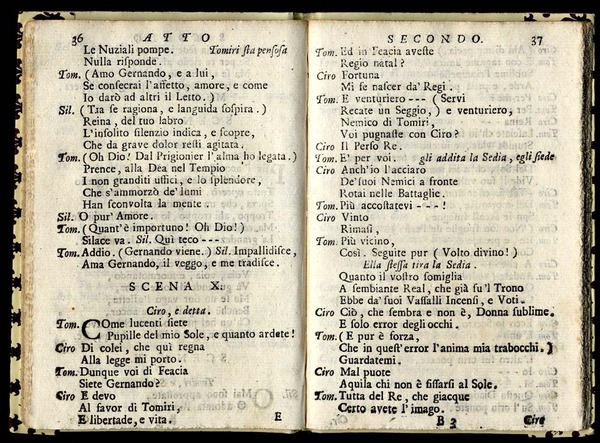 36 ATTO
Le Nuziali pompe. Tomiri sta pensosa
Nulla risponde.
Tom. (Amo Gernando, e a lui,
Se consecrai l'affetto, amore, e come
Io darò ad altri il Letto.)
Sil. (Tra se ragiona, e languida sospira.)
Reina, del tuo labro
L'insolito silenzio indica, e scopre,
Che da grave dolor resti agitata.
Tom. (Oh Dio! Dal Prigionier l'alma ho legata.)
Prence, alla Dea nel Tempio
I non granditi uffici, e lo splendore,
Che s'ammorzò de' lumi
Han sconvolta la mente.
Sil. O pur' Amore.
Tom. (Quant'è importuno! Oh Dio!)
Silace va. Sil. Quì teco ---
Tom. Addio. (Gernando viene.) Sil. Impallidisce,
Ama Gernando, il veggo, e me tradisce.
SCENA X.
Ciro, e detta.
Tom. COme lucenti siete
Pupille del mio Sole, e quanto ardete!
Ciro Di colei, che quì regna
Alla legge mi porto.
Tom. Dunque voi di Feacia
Siete Gernando?
Ciro E devo
Al favor di Tomiri,
E libertade, e vita. E
SECONDO. 37
Tom. Ed in Feacia aveste
Regio natal?
Ciro Fortuna
Mi fe nascer da' Regi.
Tom. E venturiero --- (Servi
Recate un Seggio,) e venturiero,
Nemico di Tomiri,
Voi pugnaste con Ciro?
Ciro Il Perso Re.
Tom. E' per voi. gli addita la Sedia, egli siede
Ciro Anch'io l'acciaro
De' suoi Nemici a fronte
Rotai nelle Battaglie.
Tom. Più accostatevi ---!
Ciro Vinto
Rimasi,
Tom. Più vicino,
Così. Seguite pur (Volto divino!)
Ella stessa tira la Sedia.
Quanto il vostro somiglia
A sembiante Real, che già su'l Trono
Ebbe da' suoi Vassalli Incensi, e Voti.
Ciro Ciò, che sembra e non è, Donna sublime,
E solo error degli occhi.
Tom. (E pur è forza,
Che in quest'error l'anima mia trabocchi.)
Guardatemi.
Ciro Mal puote
Aquila chi non è fissarsi al Sole.
Tom. Tutta del Re, che giacque
Certo avete l'imago.
B 3 Ciro